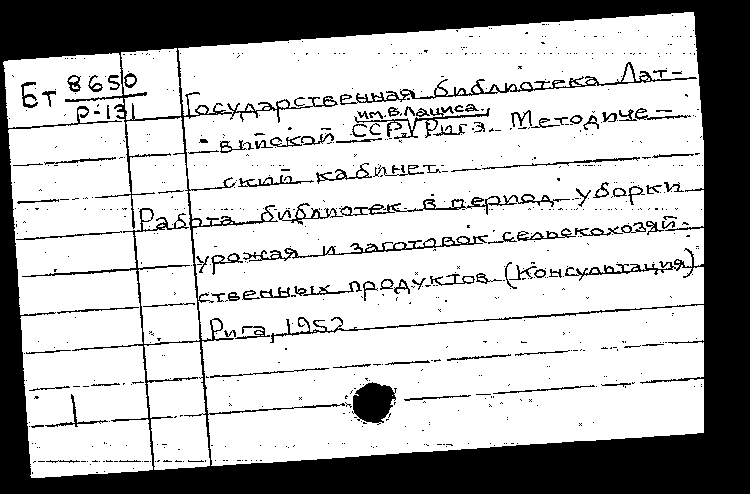 Бт 8650
Р-131
Государственная библиотека Лат-
им. В. Лациса.
вийской ССР. Рига. Методиче-
ский кабинет.
Работа библиотек в период уборки
урожая и заготовок сельскохозяй-
ственных продуктов (Консультация)
Рига, 1952.